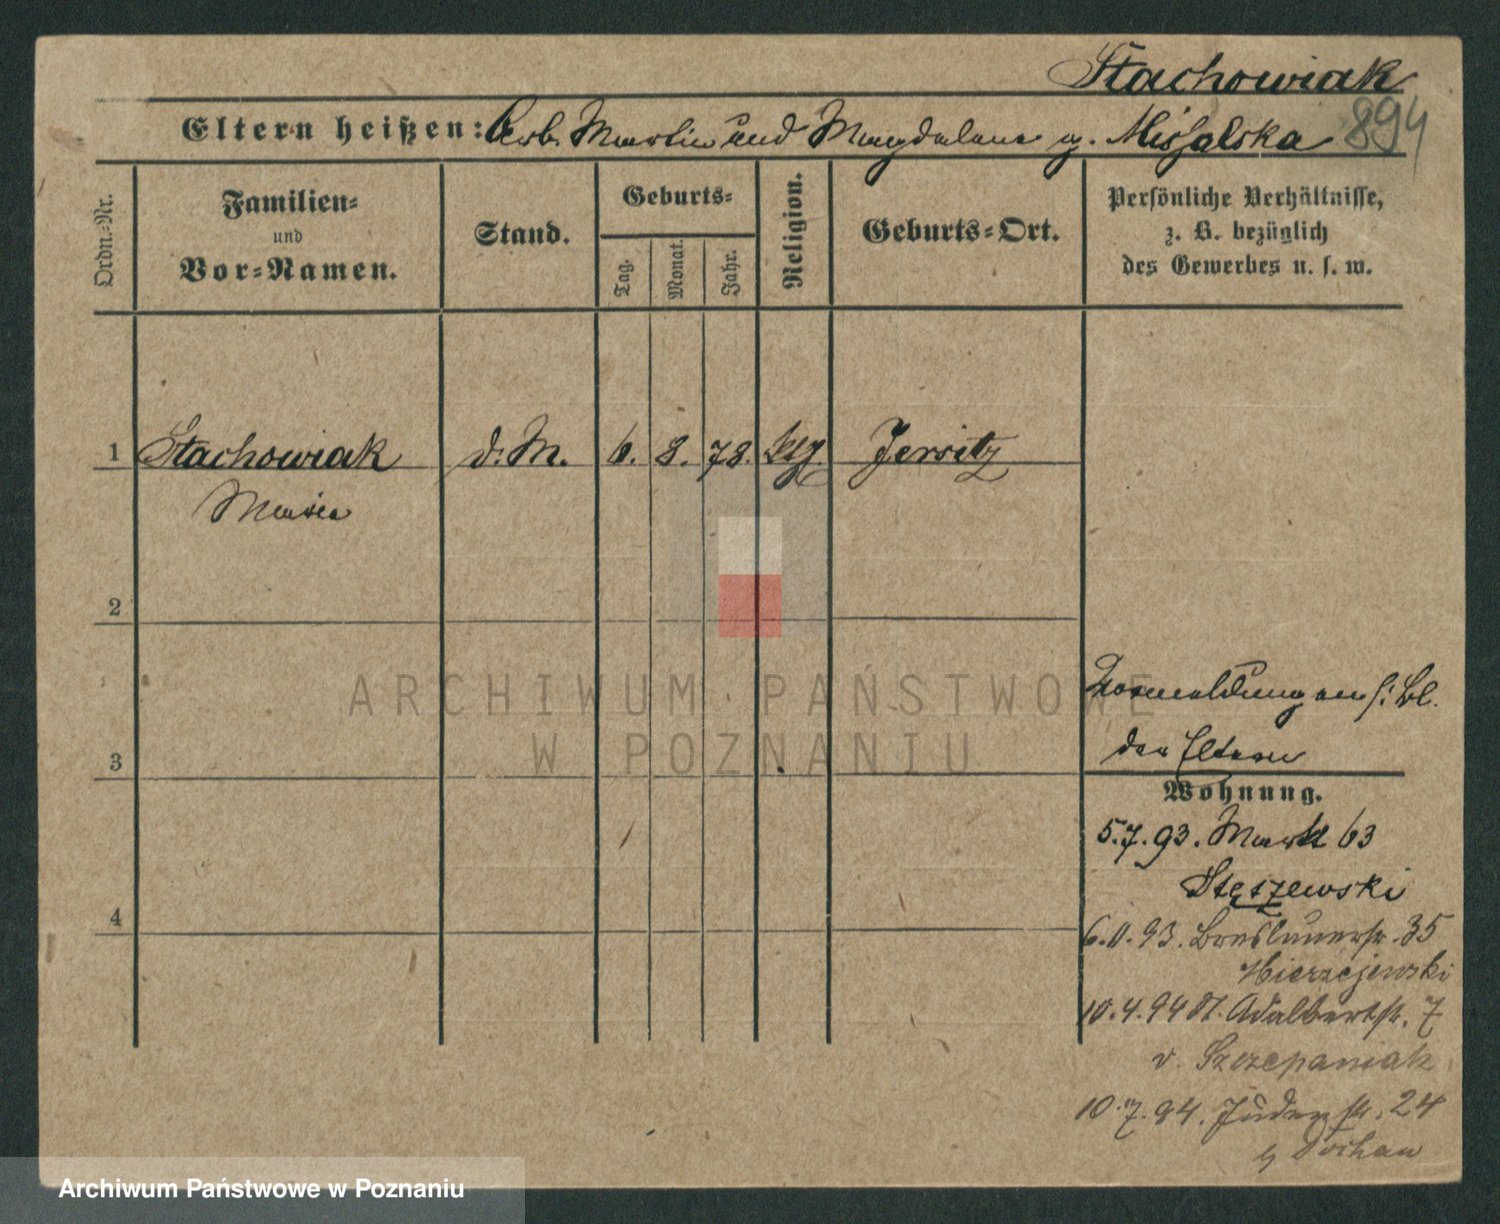 Stachowiak
894
Eltern heißen: Arb. Martin und Magdalena g. Missalska
Ordn.-Nr.
Familien-
und
Vor-Namen.
Stand.
Geburts-
Tag.
Monat.
Jahr.
Religion.
Geburts-Ort.
Persönliche Verhältnisse,
z. B. bezüglich
des Gewerbes u. s. w.
1 Stachowiak d. M. 6. 8. 78. ktg. Jersitz
Maria
2
3
4
an s: Bl.
der Eltern
Wohnung.
5.7.93. Markt 63
Stęszewski
6.11.93. Breslauerstr. 35
Mierzejewski
10.4.94 St. Adalbertstr. 7
v. Szczepaniak
10.7.94. Judenstr. 24
b/ Sochau
ARCHIWUM PAŃSTWOWE
W POZNANIU
Archiwum Państwowe w Poznaniu